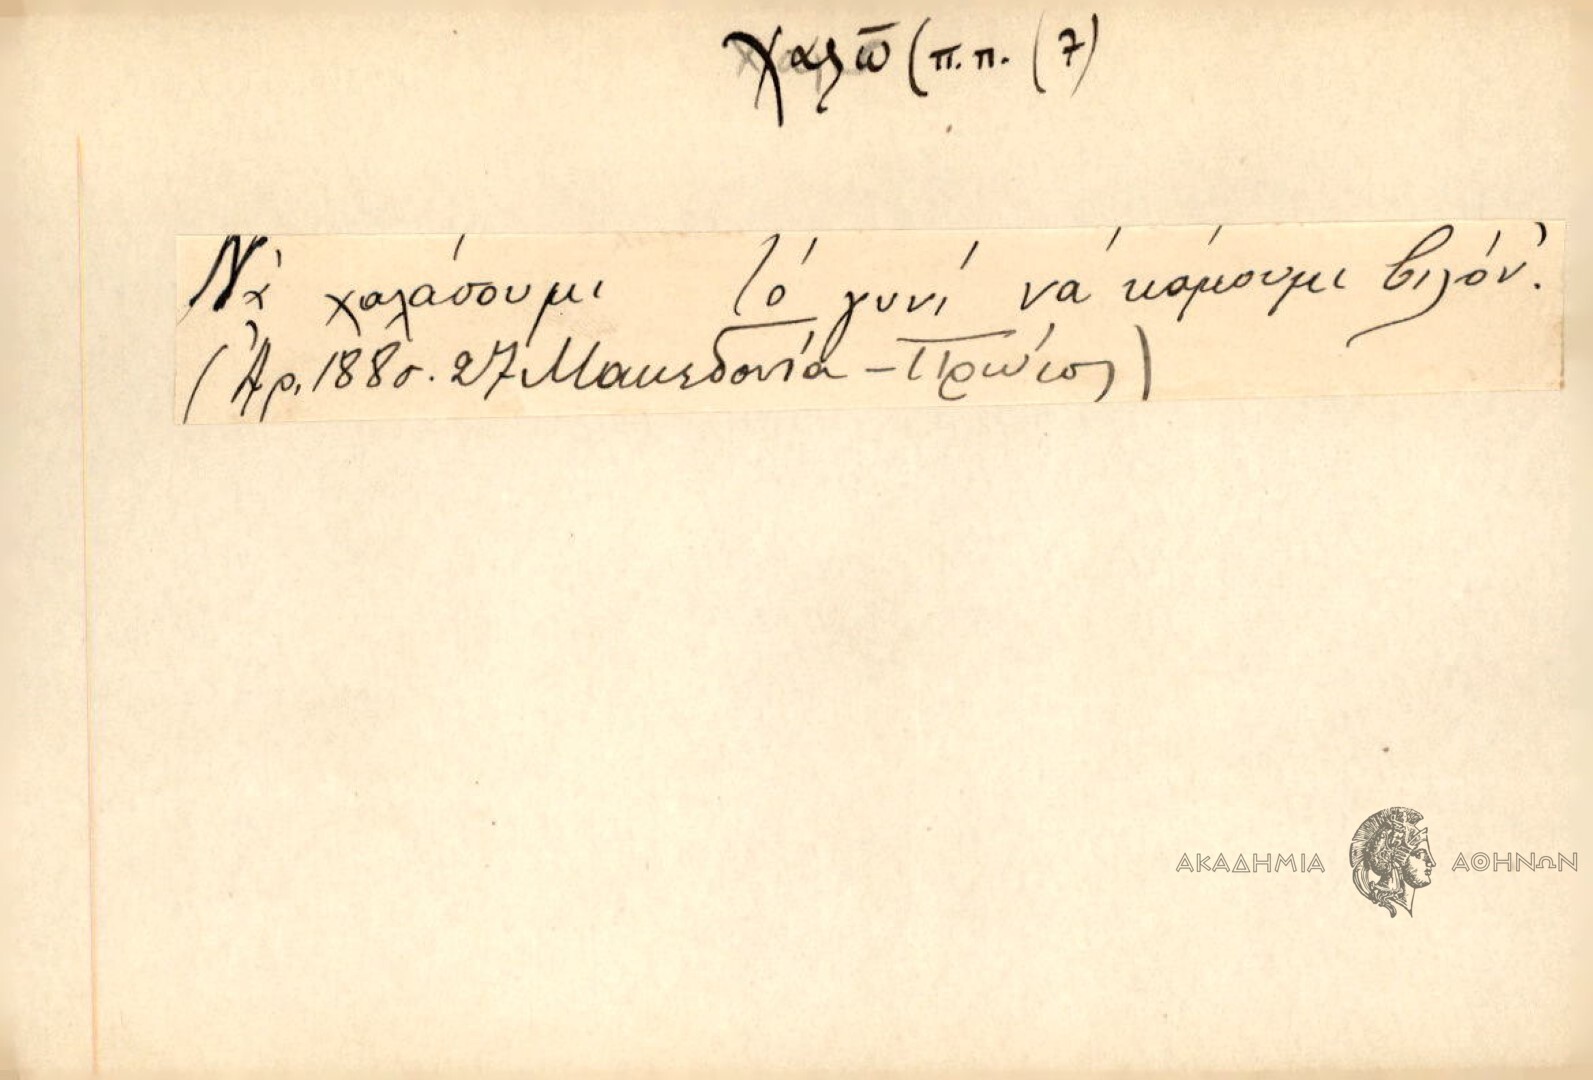 χαλῶ (π.π. (7)
Νὰ χαλάσουμι τό γυνί νά κάμουμι βιλόν'.
(Ἀρ. 188 σ. 27 Μακεδονία - Πρώτσ)
ΑΚΑΔΗΜΙΑ ΑΘΗΝΩΝ